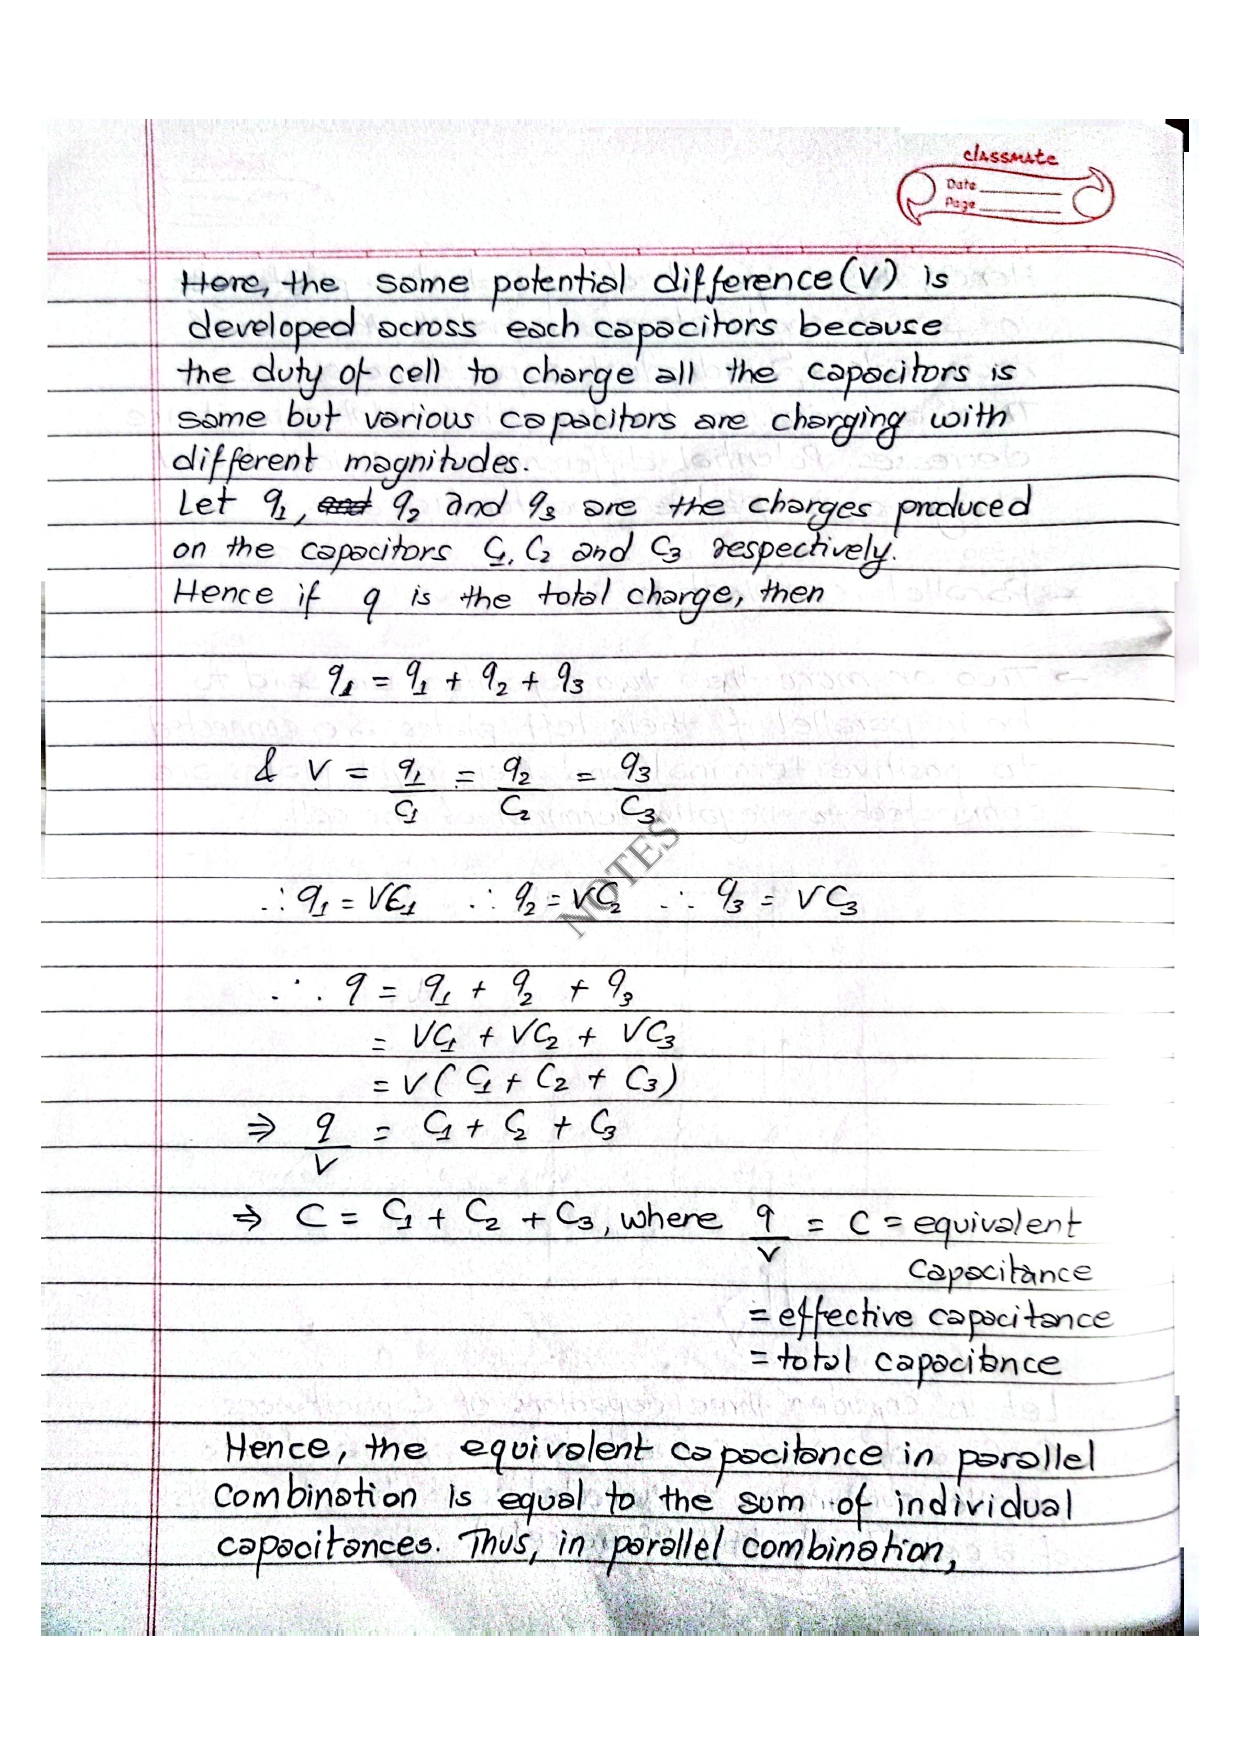 classmate
Date
Page
Here, the same potential difference (V) is
developed across each capacitors because
the duty of cell to charge all the capacitors is
same but various capacitors are charging with
different magnitudes.
Let q₁, and q₂ and q₃ are the charges produced
on the capacitors C₁, C₂ and C₃ respectively.
Hence if q is the total charge, then
q₁ = q₁ + q₂ + q₃
& V = q₁/C₁ = q₂/C₂ = q₃/C₃
∴ q₁ = VC₁ ∴ q₂ = VC₂ ∴ q₃ = VC₃
NOTES
∴ q = q₁ + q₂ + q₃
= VC₁ + VC₂ + VC₃
= V(C₁ + C₂ + C₃)
⇒ q/V = C₁ + C₂ + C₃
⇒ C = C₁ + C₂ + C₃, where q/V = C = equivalent
capacitance
= effective capacitance
= total capacitance
Hence, the equivalent capacitance in parallel
combination is equal to the sum of individual
capacitances. Thus, in parallel combination,